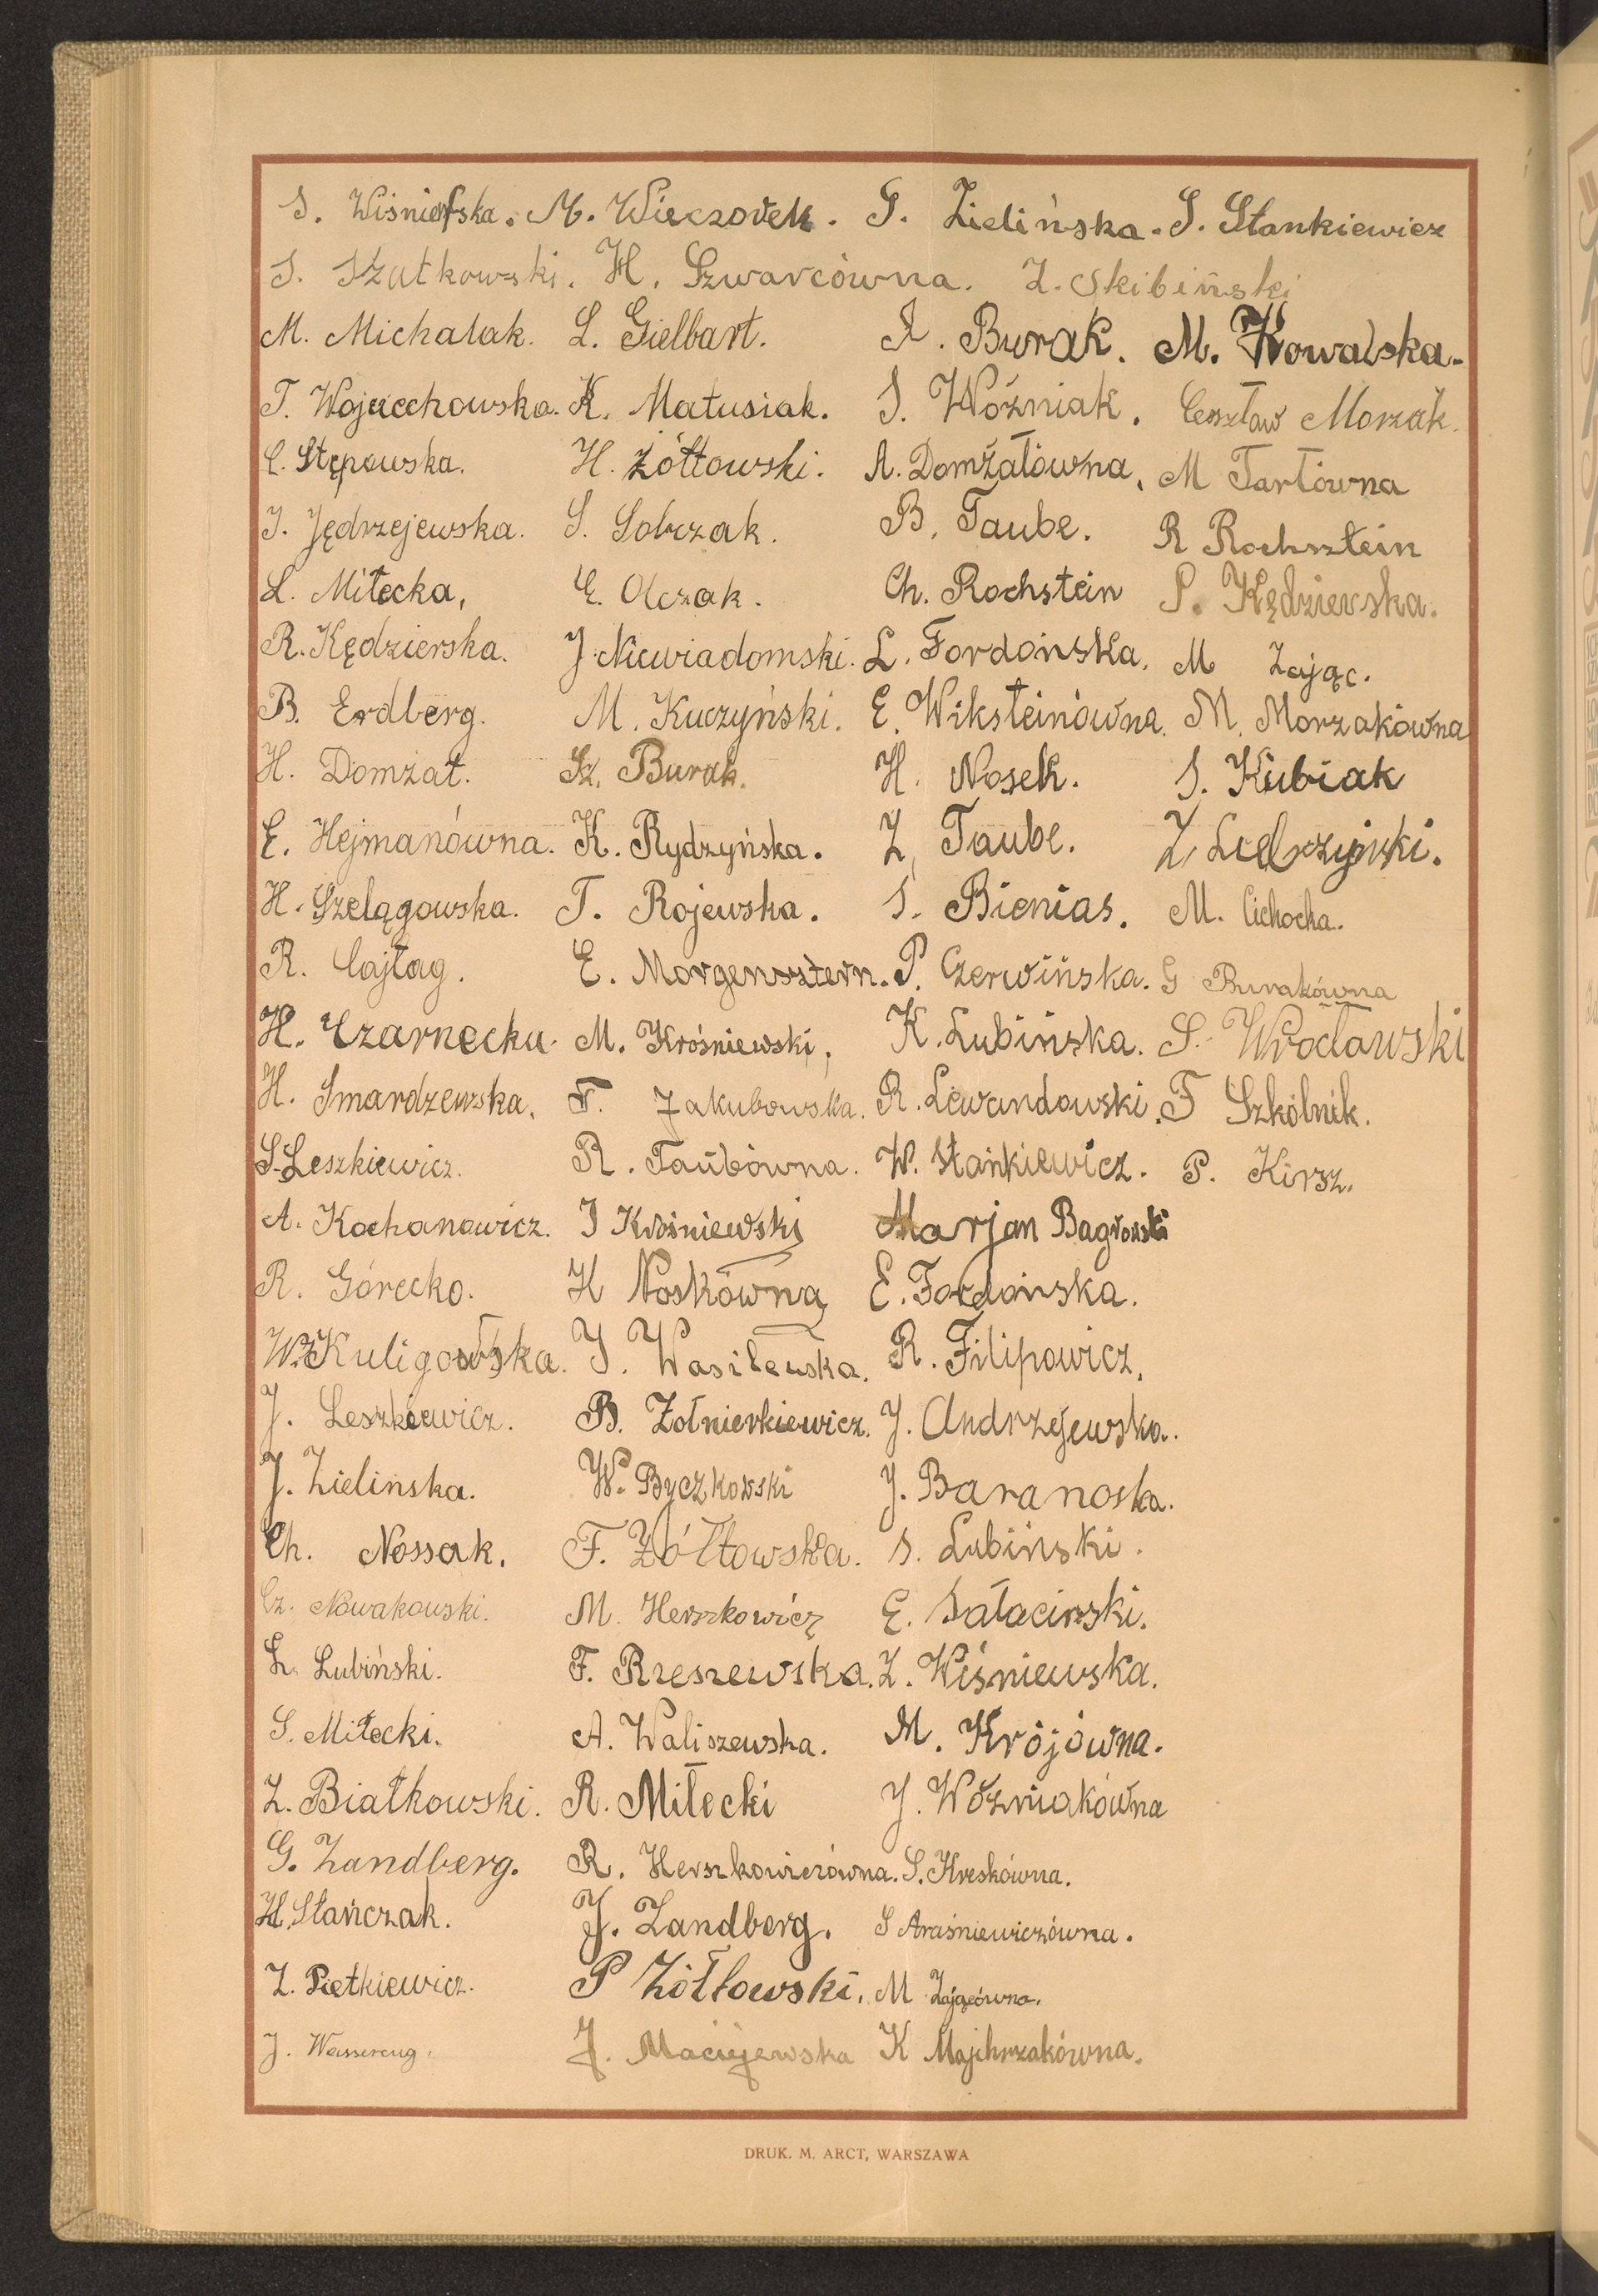 S. Wiśniewska. M. Wieczorek. G. Zielińska. S. Stankiewicz
S. Szatkowski. H. Szwarcówna. Z. Skibiński
M. Michalak. L. Gielbart. I. Burak. M. Kowalska.
T. Wojciechowska. K. Matusiak. S. Woźniak. Czesław Morzak.
C. Stępowska. H. Żółtowski. A. Domżałówna, M Tartówna
J. Jędrzejewska. S. Sobczak. B. Taube. R Rochsztein
L. Miłecka, E. Olczak. Ch. Rochstein P. Kędzierska.
R. Kędzierska. J. Niewiadomski. L. Fordońska. M Zając.
B. Erdberg. M. Kuczyński. E. Wiksteinówna. M. Morzakówna
H. Domżał. Sz. Burak. H. Nosek. S. Kubiak
E. Hejmanówna. K. Rydzyńska. Z. Taube. Z.
H. Szelągowska. T. Rojewska. S. Bienias. M. Cichocka.
R. Cajtag. E. Morgensztern. P. Czerwińska. G Burakówna
H. Czarnecka. M. Krośniewski, K. Lubińska. S. Wrocławski
H. Smardzewska, F. Jakubowska. R. Lewandowski. F Szkólnik.
S. Leszkiewicz. R. Taubówna. W. Stankiewicz. P. Kirsz.
A. Kochanowicz. J Krośniewski Marjan Bagrowski
R. Górecko. H Noskówna E. Fordońska.
Wł. Kuligowska. J. Wasilewska. R. Filipowicz.
J. Leszkiewicz. B. Żołnierkiewicz. J. Andrzejewska.
J. Zielinska. W. Byczkowski J. Baranoska.
Ch. Nossak. F. Żółtowska. S. Lubiński.
Cz. Nowakowski. M. Herszkowicz E. Sałaciński.
L. Lubiński. F. Rzeszewska. Z. Wiśniewska.
S. Miłecki. A. Waliszewska. M. Krójówna.
Z. Białkowski. R. Miłecki J. Woźniakówna
G. Zandberg. R. Herszkowiczówna. S. Kreskówna.
H. Stańczak. J. Zandberg. S Araśniewiczówna.
Z. Pietkiewicz. P Żółtowski. M Zającówna.
J. J. Maciejewska K Majchrzakówna.
DRUK. M. ARCT, WARSZAWA